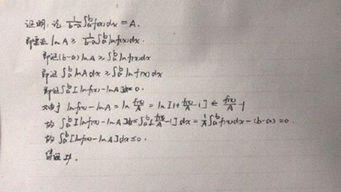 证明：记 1/(b-a) ∫_a^b f(x)dx = A.
即要证 ln A ≥ 1/(b-a) ∫_a^b ln f(x)dx.
即证(b-a) ln A ≥ ∫_a^b ln f(x)dx
即证 ∫_a^b ln A dx ≥ ∫_a^b ln f(x)dx
即证 ∫_a^b [ln f(x) - ln A]dx ≤ 0.
由于 ln f(x) - ln A = ln f(x)/A = ln[1+ f(x)/A -1] ≤ f(x)/A -1
故 ∫_a^b [ln f(x) - ln A]dx ≤ ∫_a^b [f(x)/A -1]dx = 1/A ∫_a^b f(x)dx - (b-a) = 0
故 ∫_a^b [ln f(x) - ln A]dx ≤ 0.